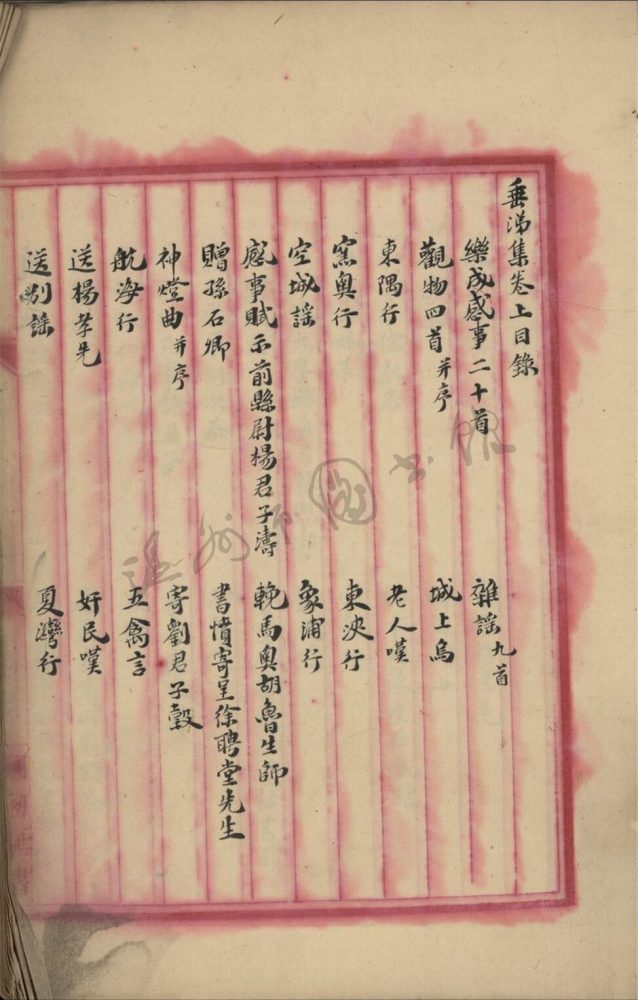 垂涕集卷上目錄
樂成感事二十首 雜謠九首
觀物四首并序 城上烏
東隅行 老人嘆
窯奧行 東洨行
空城謠 象浦行
感事賦示前縣尉楊君子濤 輓馬奧胡魯生師
贈孫石卿 書憤寄呈徐聘堂先生
神燈曲并序 寄劉君子穀
航海行 五禽言
送楊孝先 奸民嘆
送別謠 夏灣行
溫州市圖書館